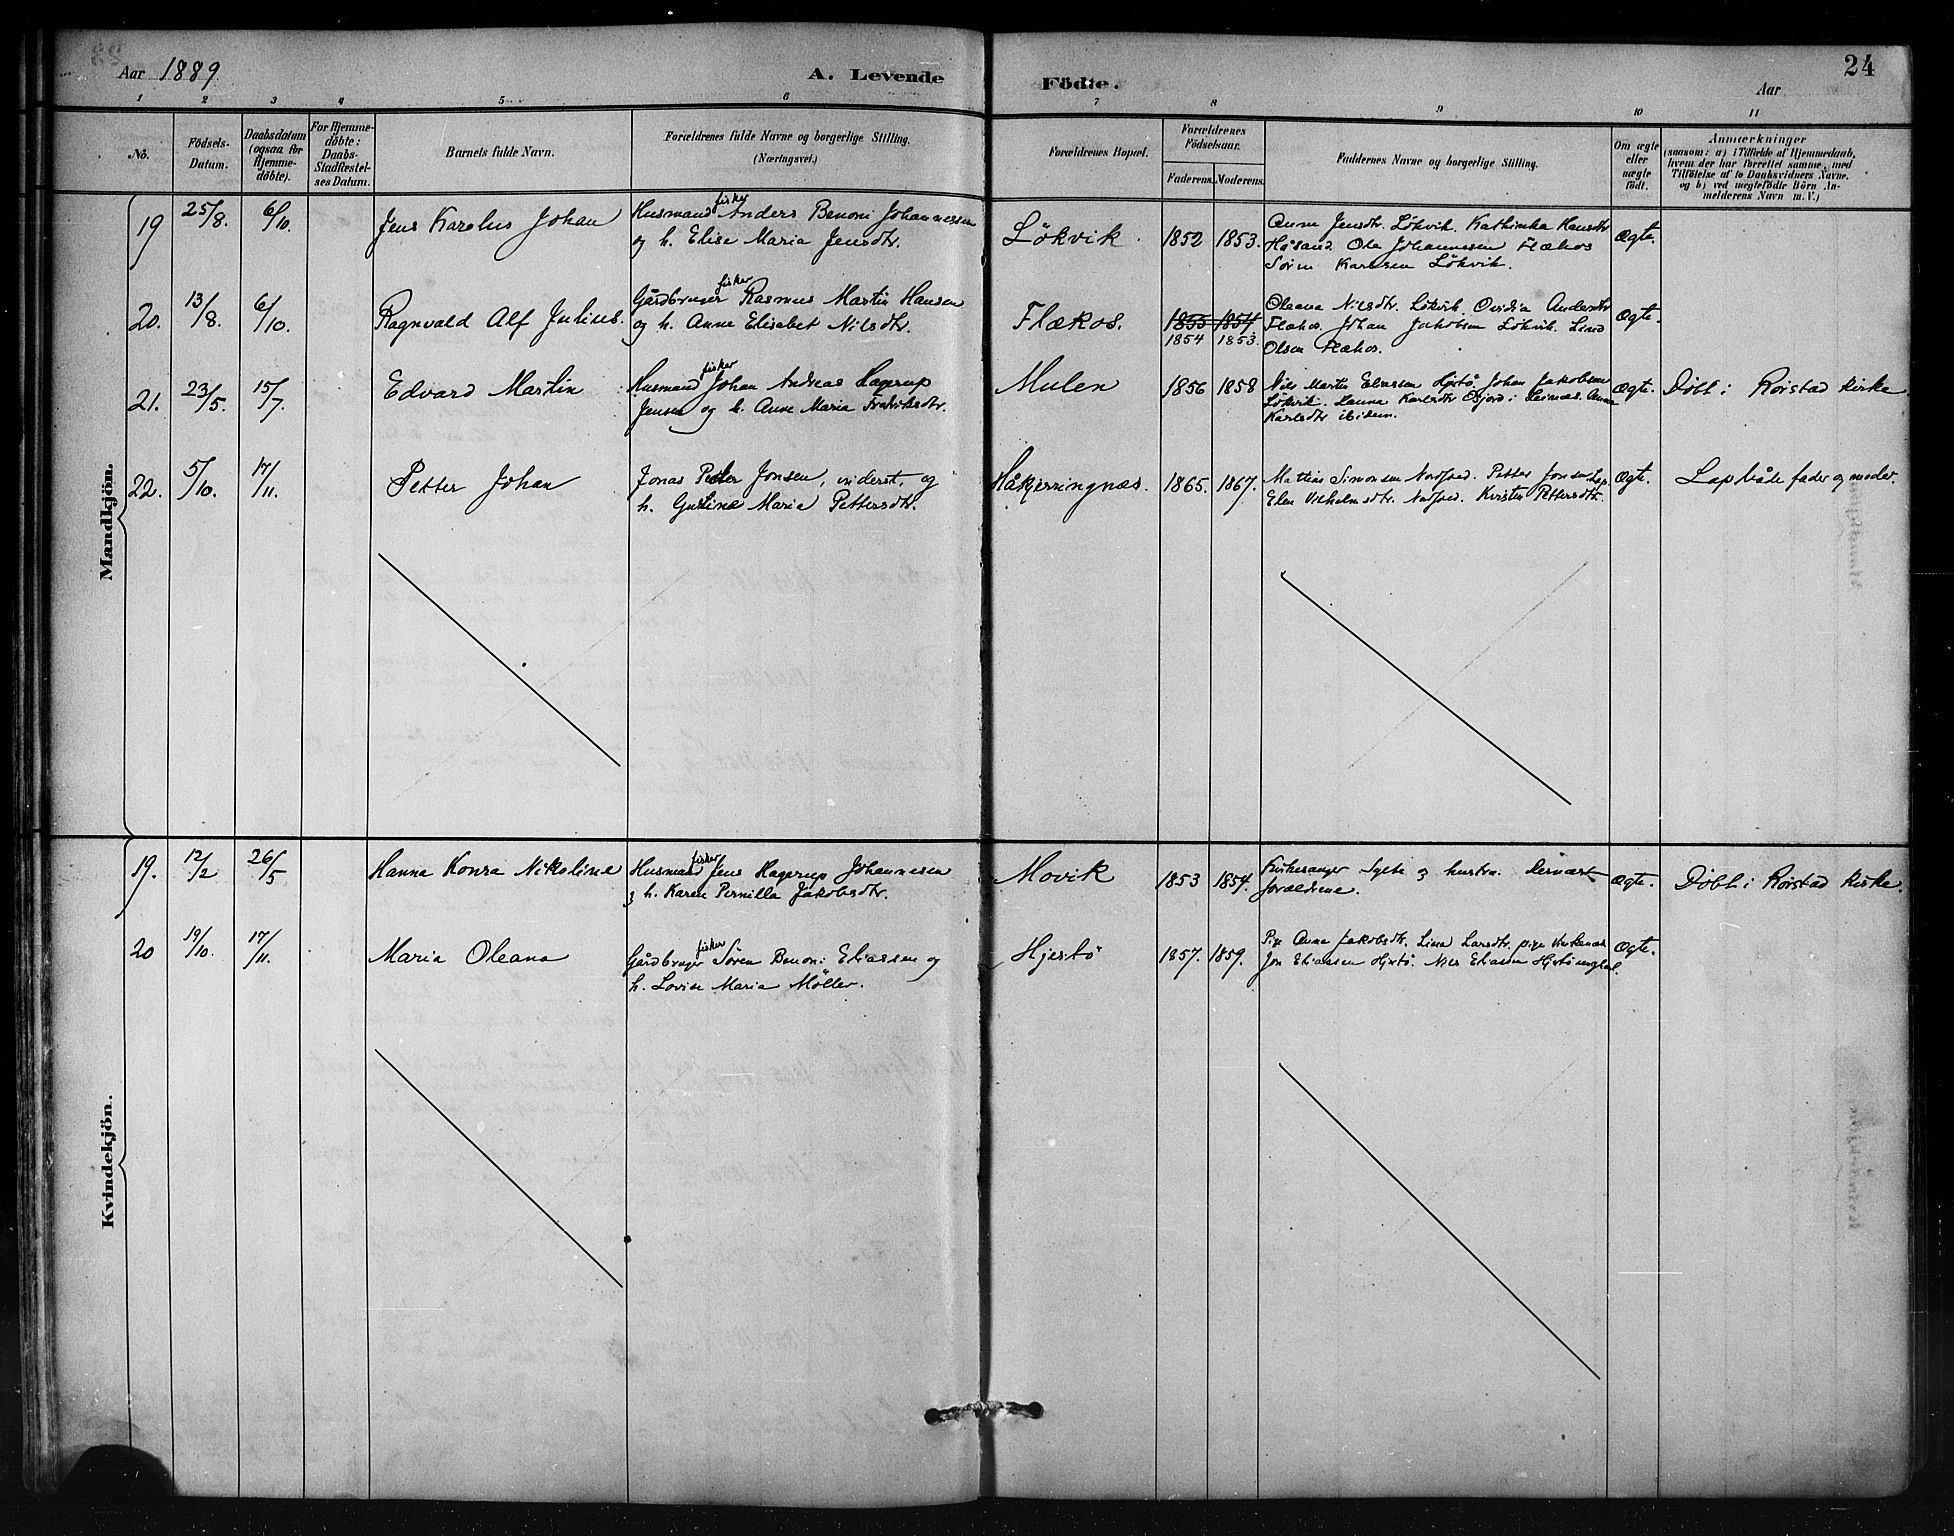 Aar 1889
A. Levende
Födte.
Aar
24
1 2 3 4 5 6 7 8 9 10 11
No.
Födsels-
Datum.
Daabsdatum
(ogsaa for
Hjemme-
döbte).
For Hjemme-
döbte:
Daabs-
Stadfæstel-
ses Datum.
Barnets fulde Navn.
Forældrenes fulde Navne og borgerlige Stilling.
(Næringsvei.)
Forældrenes Bopæl.
Forældrenes
Födselsaar.
Faderens.
Moderens.
Faddernes Navne og borgerlige Stilling.
Om ægte
eller
uægte
födt.
Anmærkninger
(saasom: a) i Tilfælde af Hjemmedaab,
hvem der har forrettet samme, med
Tilföielse af to Daabsvidners Navne.
og b) ved uægtefödte Börn An-
melderens Navn m. V.)
Mandkjön.
19 25/8. 6/10. Jens Karolus Johan
Husmand fisker Anders Benoni Johannessen
og h. Elise Maria Jensdtr.
Løkvik. 1852 1853.
Anne Jensdtr. Løkvik. Kathinka Hansdtr
Håsand. Ole Johannesen Flækos
Søren Karlsen Løkvik.
Ægte.
20. 13/8. 6/10. Ragnvald Alf Julius.
Gårdbruger fisker Rasmus Martin Hansen
og h. Anne Elisabet Nilsdtr.
Flækos. 1855 1854.
1854 1853.
Oleana Nilsdtr. Løkvik. Ovidia Andersdtr
Flækos. Johan Jakobsen Løkvik.
Olsen Flækos.
Ægte.
21. 23/5. 15/7. Edvard Martin
Husmand fisker Johan Andreas Hagerup
Jensen og h. Anne Maria Fredriksdtr.
Mulen 1856 1858
Nils Martin Eliassen Hjertø. Johan Jakobsen
Løkvik. Hanna Karlsdtr Osjord i Leines. Anna
Karlsdtr ibidem.
Ægte. Døbt i Rørstad kirke
22. 5/10. 17/11. Petter Johan
Jonas Peter Jonsen, inderst, og
h. Gurine Maria Pettersdtr.
Håkjerringnæs. 1865. 1867.
Mathis Simonsen Nordfjord. Petter Jonsen Lap.
Elen Vilhelmsdtr. Nordfjord. Kirsten Pettersdtr.
Ægte. Lap både fader og moder.
Kvindekjön.
19. 12/2 26/5 Hanna Konra Nikoline
Husmand fisker Jens Hagerup Johannesen
og h. Karen Pernilla Jakobsdtr.
Movik 1853 1854.
Kirkesanger Sylte og hustru. Dernæst
forældrene.
Ægte. Døbt i Rørstad kirke.
20 19/10. 17/11. Maria Oleana
Gårdbruger fisker Søren Benoni Eliassen og
h. Lovise Maria Møller.
Hjertø 1857. 1859.
Pige Anna Jakobsdtr. Lina Larsdtr. pige
Jon Eliassen Hjertø. Nils Eliassen Hjertø ungkarl.
Ægte.